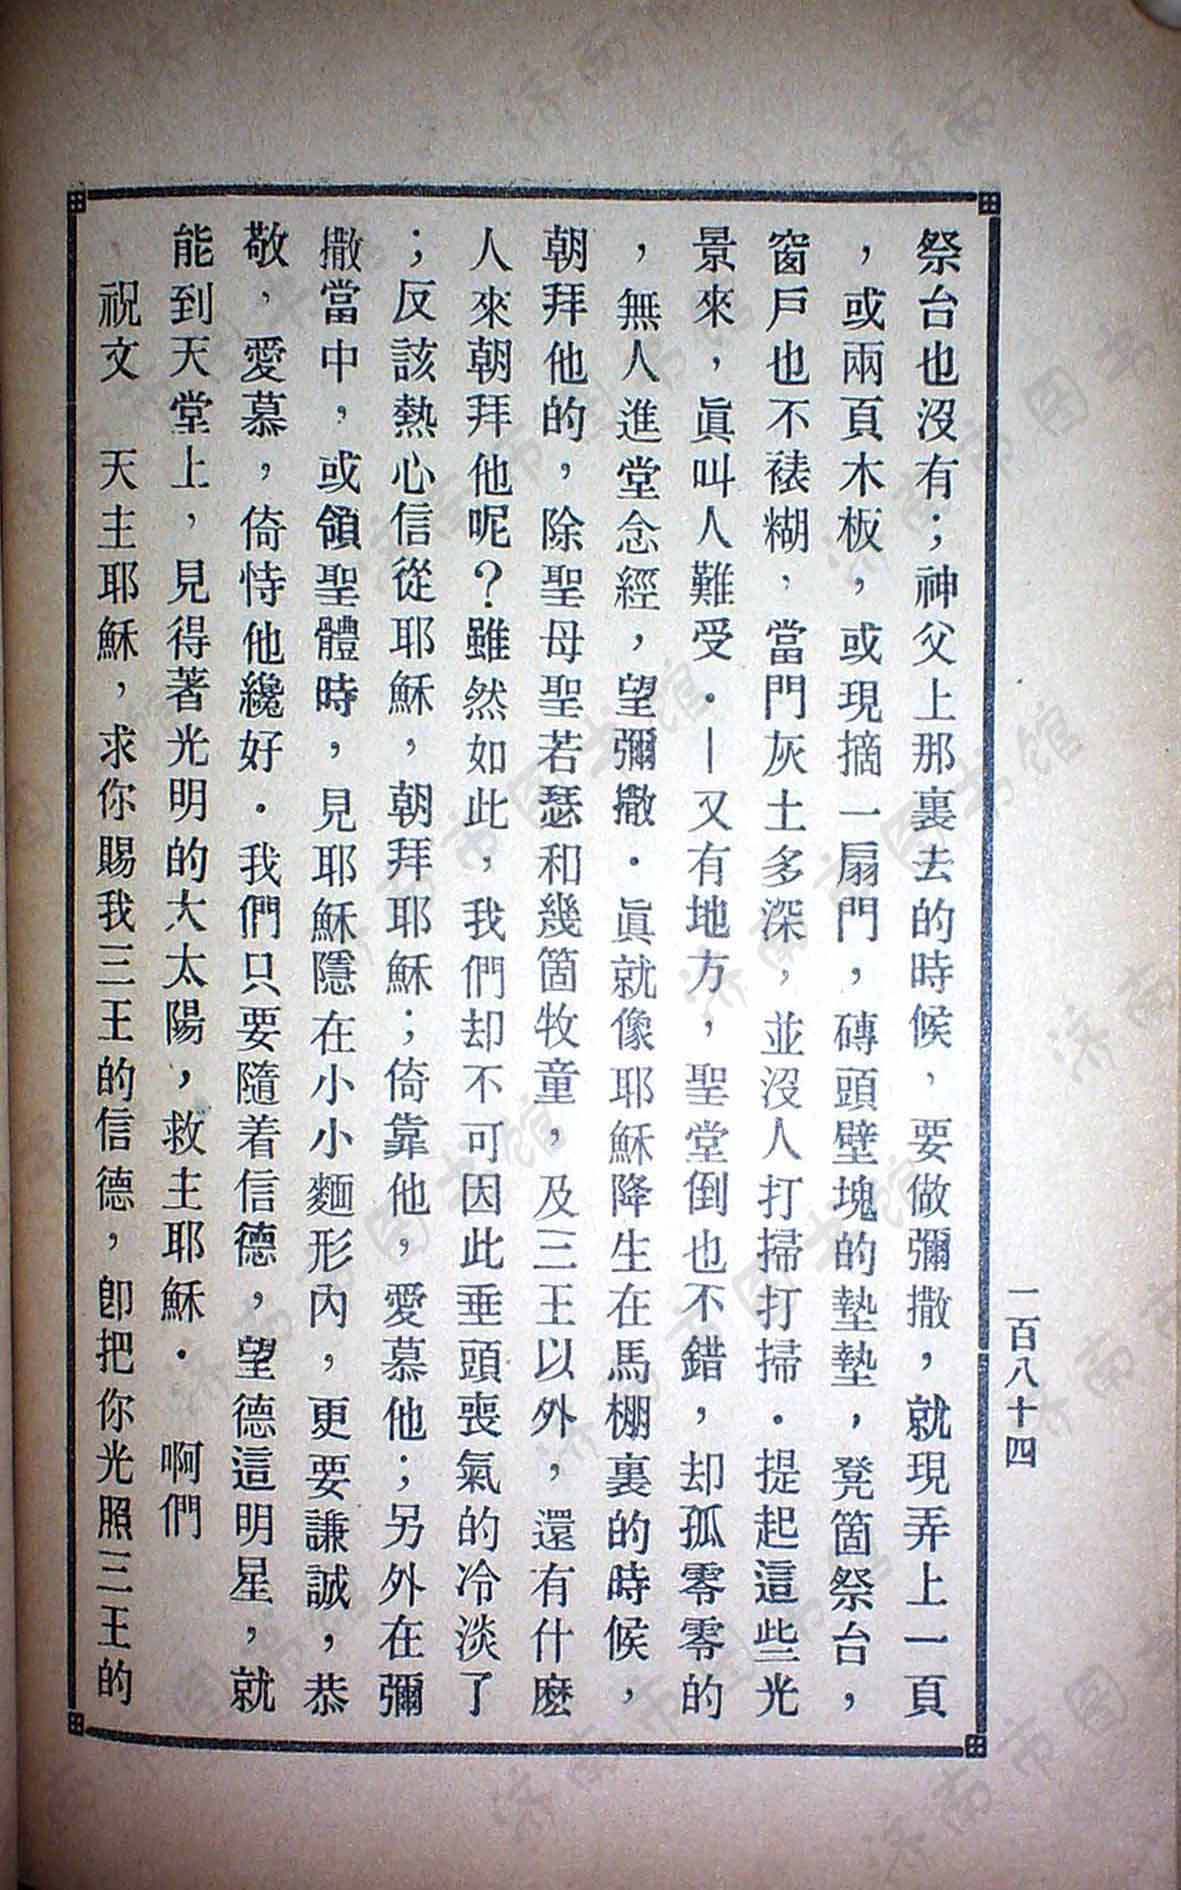 祭台也沒有；神父上那裏去的時候，要做彌撒，就現弄上一頁
，或兩頁木板，或現摘一扇門，磚頭壁塊的墊墊，凳箇祭台，
窗戶也不裱糊，當門灰土多深，並沒人打掃打掃．提起這些光
景來，眞叫人難受．—又有地方，聖堂倒也不錯，却孤零零的
，無人進堂念經，望彌撒．眞就像耶穌降生在馬棚裏的時候，
朝拜他的，除聖母聖若瑟和幾箇牧童，及三王以外，還有什麽
人來朝拜他呢？雖然如此，我們却不可因此垂頭喪氣的冷淡了
；反該熱心信從耶穌，朝拜耶穌；倚靠他，愛慕他；另外在彌
撒當中，或領聖體時，見耶穌隱在小小麵形內，更要謙誠，恭
敬，愛慕，倚恃他纔好．我們只要隨着信德，望德這明星，就
能到天堂上，見得著光明的大太陽，救主耶穌．　啊們
祝文　天主耶穌，求你賜我三王的信德，卽把你光照三王的
一百八十四
濟南市图书馆